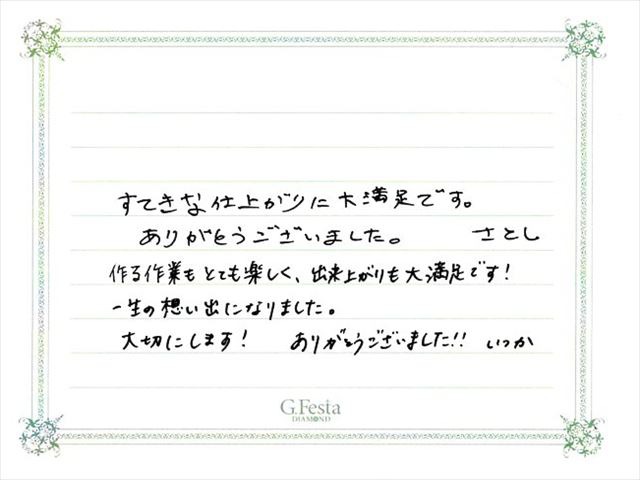 すてきな仕上がりに大満足です。
ありがとうございました。 さとし
作る作業もとても楽しく、出来上がりも大満足です!
一生の想い出になりました。
大切にします! ありがとうございました!! いつか
G.Festa
DIAMOND